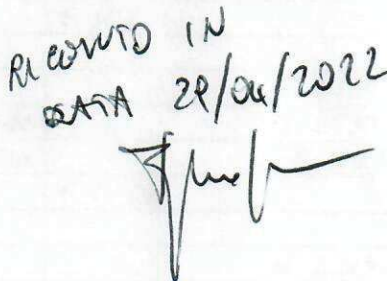 RICEVUTO IN
DATA 29/04/2022